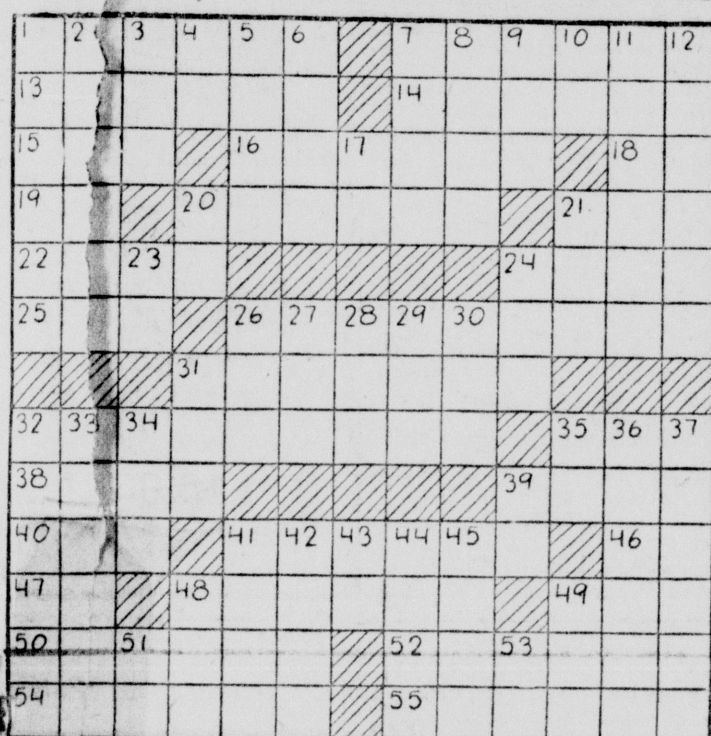 1 2 3 4 5 6 7 8 9 10 11 12
13 14
15 16 17 18
19 20 21
22 23 24
25 26 27 28 29 30
31
32 33 34 35 36 37
38 39
40 41 42 43 44 45 46
47 48 49
50 51 52 53
54 55